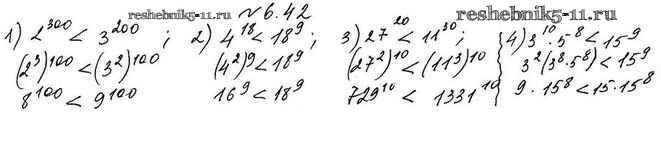 reshebnik5-11.ru №6.42 reshebnik5-11.ru
1) 2^300 < 3^200 ; 2) 4^18 < 18^9 ; 3) 27^20 < 11^30 ; 4) 3^10 · 5^8 < 15^9
(2^3)^100 < (3^2)^100 (4^2)^9 < 18^9 (27^2)^10 < (11^3)^10 3^2(3^8·5^8) < 15^9
8^100 < 9^100 16^9 < 18^9 729^10 < 1331^10 9 · 15^8 < 15·15^8